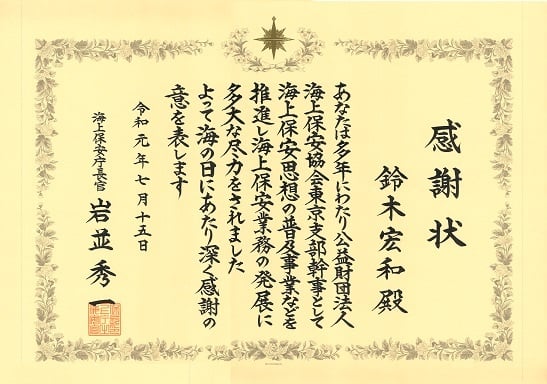 感謝状
鈴木宏和殿
あなたは多年にわたり公益財団法人
海上保安協会東京支部幹事として
海上保安思想の普及事業などを
推進し海上保安業務の発展に
多大な尽力をされました
よって海の日にあたり深く感謝の
意を表します
令和元年七月十五日
海上保安庁長官
岩並秀一